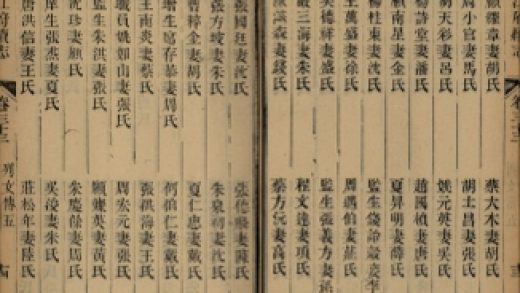 維章妻胡氏
蔡大本妻胡氏
周小官妻馬氏
胡士昌妻張氏
胡天彩妻吳氏
姚元英妻吳氏
楊詩堂妻潘氏
趙國楨妻唐氏
顧南星妻金氏
夏昇明妻薛氏
楊桂東妻沈氏
監生錢妻李
王萬盛妻徐氏
周鵬伯妻莊氏
祥妻盛氏
監生張義方妻潘氏
嚴三海妻朱氏
程文達妻項氏
森妻錢氏
蔡方沅妻高氏
張國珏妻沈氏
張德妻陳氏
張方坡妻朱氏
朱泉初妻沈氏
曹梓全妻胡氏
夏仁惠妻戴氏
增生席存恭妻周氏
何伯仁妻戴氏
王南炎妻蔡氏
張祺海妻王氏
職員姚如山妻張氏
周宏元妻張氏
監生朱洪妻張氏
顧燦英妻黃氏
沈珍妻顧氏
朱慶餘妻周氏
張燕妻夏氏
吳浚妻朱氏
唐洪信妻王氏
莊松年妻陸氏
府續志 卷三十三 列女傳五